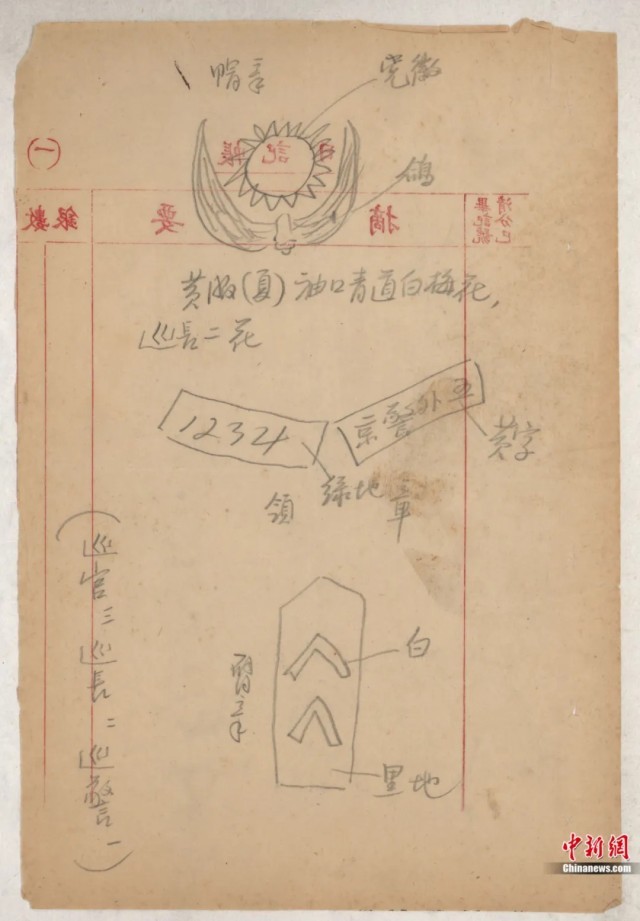 帽章
党徽
日記帳
(一)
鴿
摘要
銀數
黄服(夏)袖口青道白梅花,
巡長二花
1234
京警外五
黄字
绿地
領章
白
臂章
黑地
(巡官三 巡長二 巡警一)
中新網
Chinanews.com